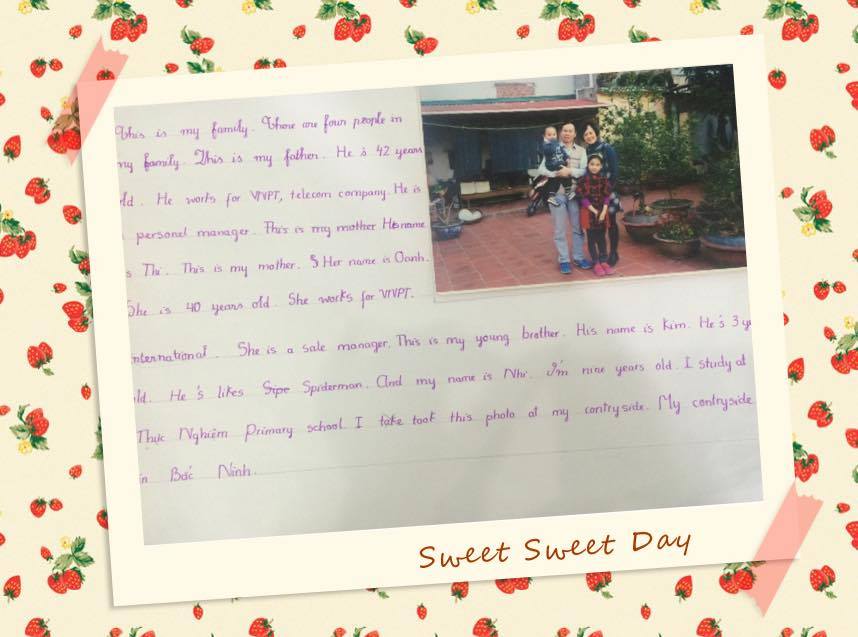 This is my family. There are four people in
my family. This is my father. He is 42 years
ld. He works for VNPT, telecom company. He is
personal manager. This is my mother. His name
s Thi. This is my mother. Her name is Oanh.
She is 40 years old. She works for VNPT.
nternational. She is a sale manager. This is my young brother. His name is Kim. He's 3 ye
ld. He's likes Sipe Spiderman. And my name is Nhi. I'm nine years old. I study at
Thực Nghiêm Primary school. I take took this photo at my contryside. My contryside
in Bắc Ninh.
Sweet Sweet Day